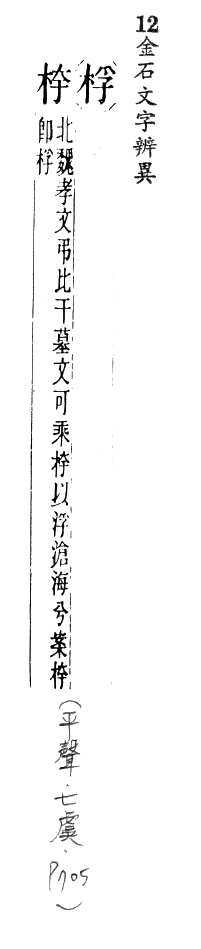 12金石文字辨異
桴
桴
北魏孝文弔比干墓文可乘桴以浮滄海兮案桴
即桴
(平聲.七虞.P705)